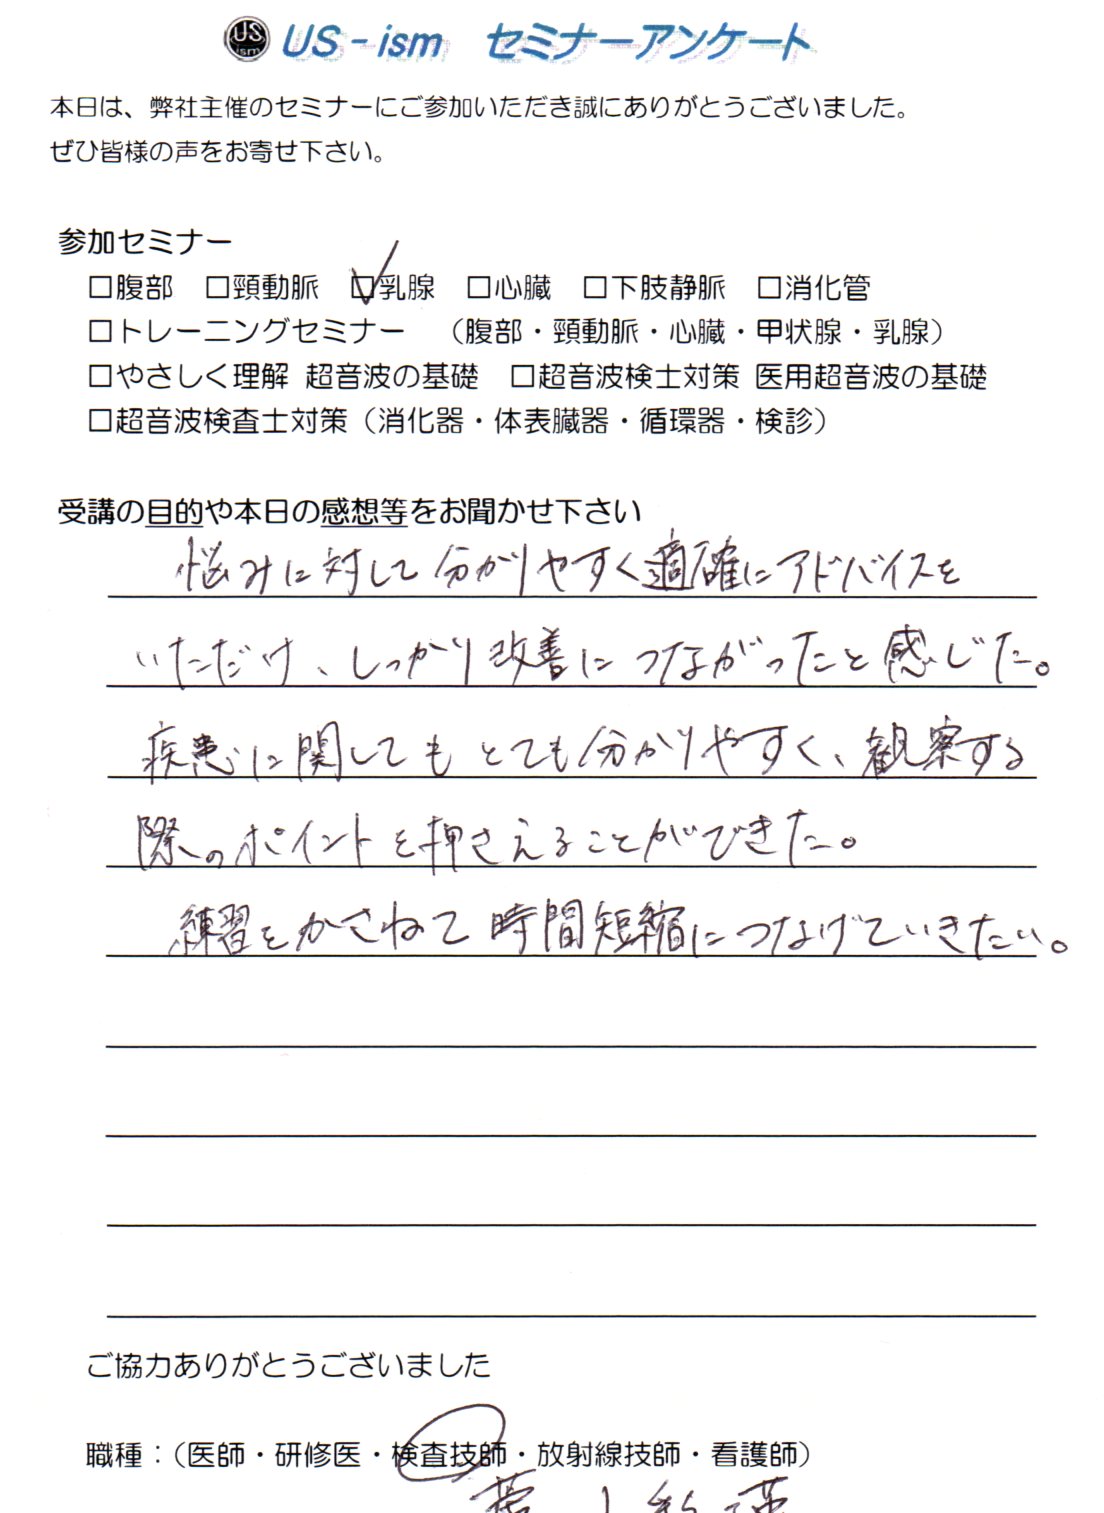 US ism US-ism セミナーアンケート
本日は、弊社主催のセミナーにご参加いただき誠にありがとうございました。
ぜひ皆様の声をお寄せ下さい。
参加セミナー
□腹部 □頸動脈 ☑乳腺 □心臓 □下肢静脈 □消化管
□トレーニングセミナー （腹部・頸動脈・心臓・甲状腺・乳腺）
□やさしく理解 超音波の基礎 □超音波検士対策 医用超音波の基礎
□超音波検査士対策（消化器・体表臓器・循環器・検診）
受講の目的や本日の感想等をお聞かせ下さい
悩みに対して分かりやすく適確にアドバイスを
いただけ、しっかり改善につながったと感じた。
疾患に関してもとても分かりやすく、観察する
際のポイントを押さえることができた。
練習をかさねて時間短縮につなげていきたい。
ご協力ありがとうございました
職種：（医師・研修医・検査技師・放射線技師・看護師）